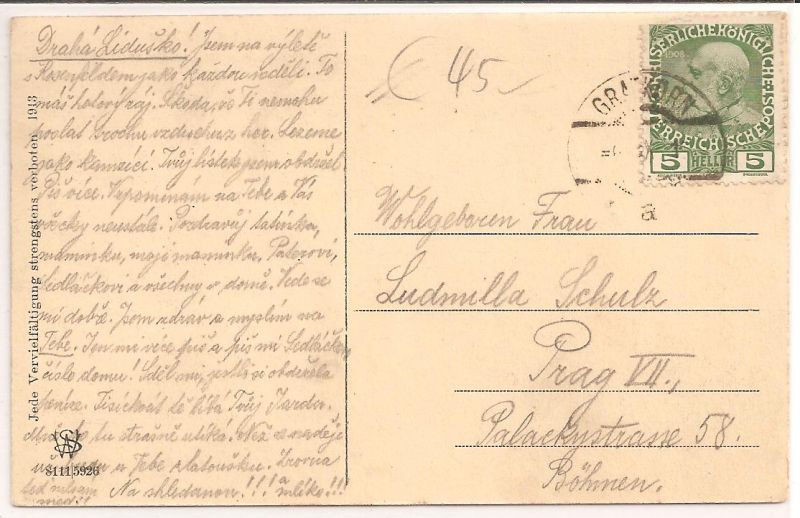 Drahá Liduško! Jsem na výletě
s Rosenfeldem jako každou neděli. To
máš hotový ráj. Škoda, že Ti nemohu
poslat trochu vzduchu z hor. Lezeme
jako kamzíci. Tvůj lístek jsem obdržel
Piš více. Vzpomínám na Tebe a Vás
všecky neustále. Pozdravuj tatínka,
maminku, moji maminku,
Sedláčkovi a všechny v domě. Vede se
mi dobře. Jsem zdráv a myslím na
Tebe. Jen mi více piš a piš mi
číslo domu! Sděl mi, jestli si obdržela
peníze. Tisíckrát tě líbá Tvůj Jarda.
to tu strašně utíká. Než
u Tebe zlatoušku. Zrovna
teď
Na shledanou!!! a mlíko!!!
Jede Vervielfältigung strengstens verboten 1913
81115926
45
1908
KAISERLICHEKÖNIGLICHE·ÖSTERREICHISCHE
5 HELLER 5
GRATKORN
a
Wohlgeboren Frau
Ludmilla Schulz
Prag VII.,
Palackystrasse 58.
Böhmen.